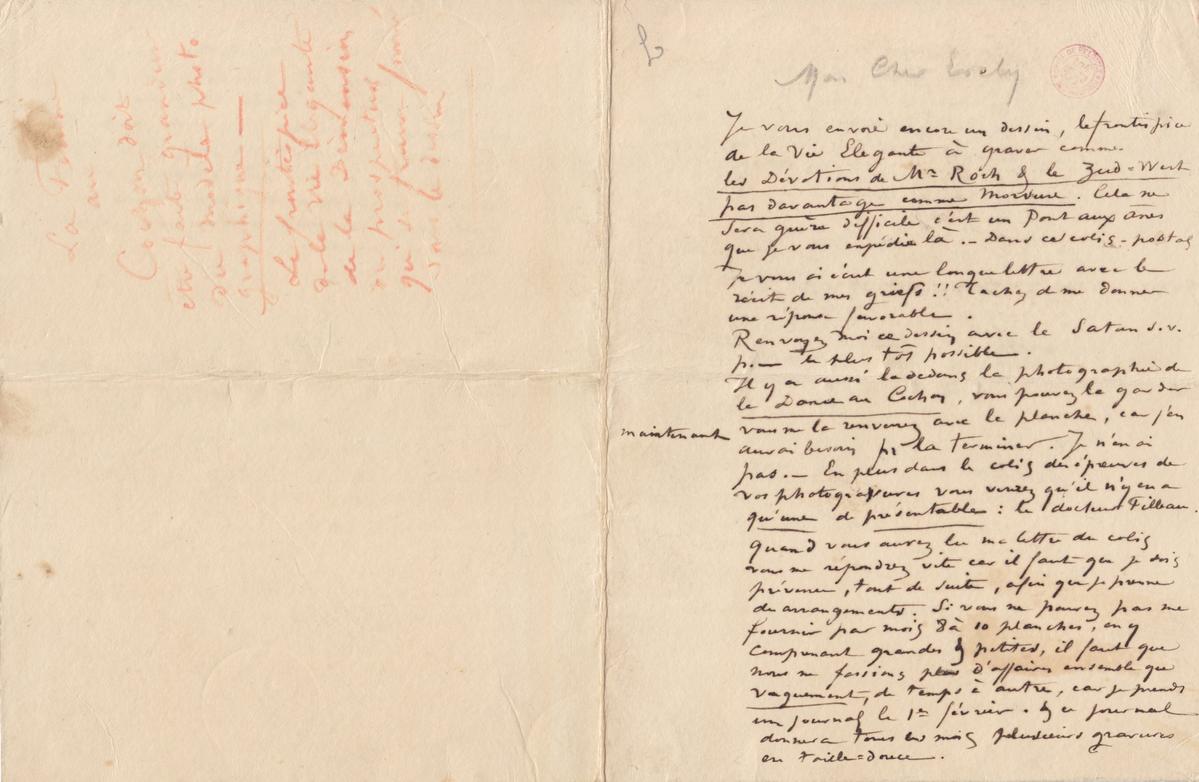 Mon Cher Evely
Je vous envoie encore un dessin, le frontispice
de la Vie Elegante à graver comme
les Dévotions de Mr Roch & le Zud-West
pas davantage comme Morsure. Cela ne
sera guère difficile c'est un Pont aux ânes
que je vous expédie là. — Dans ce colis-postal
Je vous ai écrit une longue lettre avec le
récit de mes griefs!! Tachez d me donner
une réponse favorable.
Renvoyez moi ce dessin avec le Satan s.v.
p. — le plus tôt possible.
Il y a aussi la dedans la photographie de
la Dame au Cochon, vous pouvez la garder
maintenant vous me la renverrez avec la planche, car j'en
aurai besoin pr la terminer. Je n'en ai
pas. — En plus dans le colis des épreuves de
vos photogravures vous verrez qu'il n'y en a
qu'une de présentable : le docteur Filleau.
Quand vous aurez lu ma lettre du colis
vous me répondrez vite car il faut que je sois
prévenu, tout de suite, afin que je prenne
des arrangements. Si vous ne pouvez pas me
fournir par mois 8 à 10 planches, en y
comprenant grandes & petites, il faut que
nous ne fassions plus d'affaires ensemble que
vaguement, de temps à autre, car je prends
un journal le 1er février. & ce journal
donnera tous les mois plusieurs gravures
en taille-douce.
La Femme
au
Cochon doit
etre faite grandeur
du modèle photo
graphique —
Le frontispice
de la vie Elegante
de la Dimension
du prospectus
qui se trouve
sous le dessin